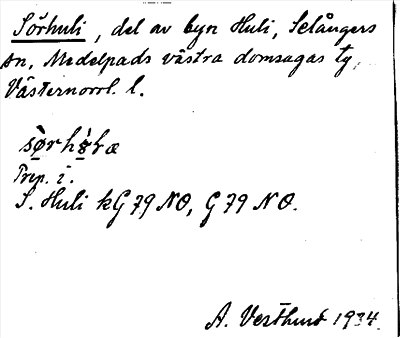 Sörhuli, del av byn Huli, Selångers
sn, Medelpads västra domsagas tg,
Västernorrl. l.
Prep. i.
S. Huli kG 79 NO, G 79 NO.
A. Vestlund 1934.